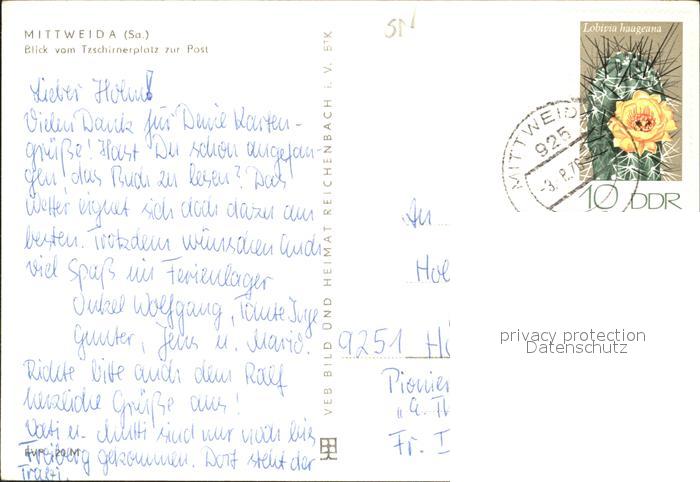 MITTWEIDA (Sa.)
Blick vom Tzschirnerplatz zur Post
Lieber Holm!
Vielen Dank für Deine Karten-
grüße! Hast Du schon angefan-
gen, das Buch zu lesen? Das
Wetter eignet sich doch dazu am
besten. Trotzdem wünschen auch
viel Spaß im Ferienlager
Onkel Wolfgang, Tante Inge
Gunter, Jens u. Mario.
Richte bitte auch dem Ralf
herzliche Grüße aus!
Vati u. Mutti sind nur noch bis
Freiberg gekommen. Dort steht der
Trabi.
20 M
VEB BILD UND HEIMAT REICHENBACH i. V. BK
51
Lobivia haageana
10 DDR
MITTWEIDA
925
-3.8.76
An
Hol
9251 H
Pionier
Fr. I
privacy protection
Datenschutz